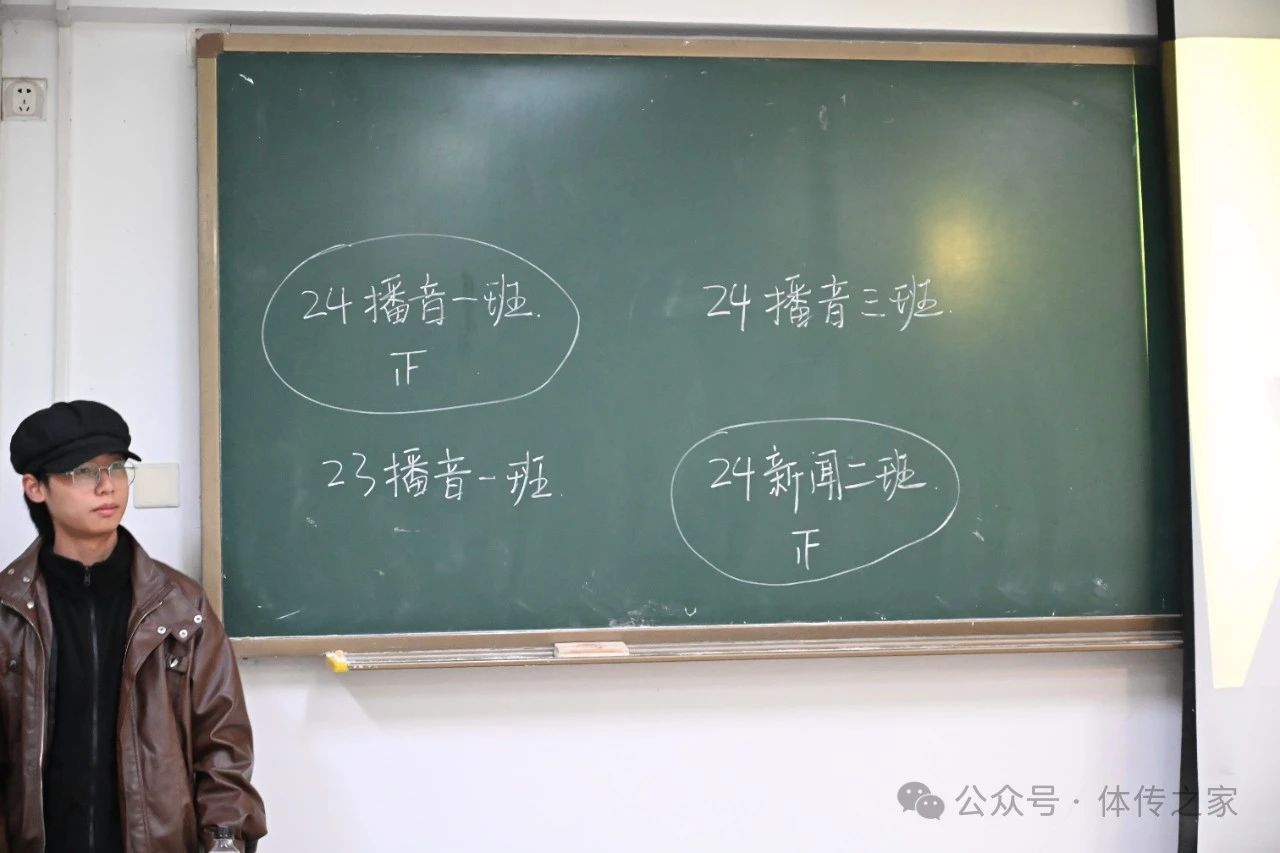 24播音一班.
正
24播音三班.
23播音一班.
24新闻二班.
正
公众号·体传之家